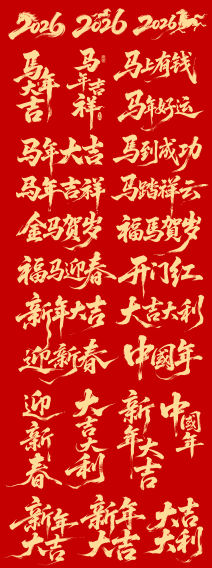 2026 2026 2026
马年大吉
马年吉祥
马上有钱
马年好运
马年大吉
馬到成功
马年吉祥
马踏祥云
金马贺岁
福馬贺岁
福马迎春
开门红
新年大吉
大吉大利
迎新春
中國年
迎新春
大吉大利
新年大吉
中國年
新年大吉
新年大吉
大吉大利